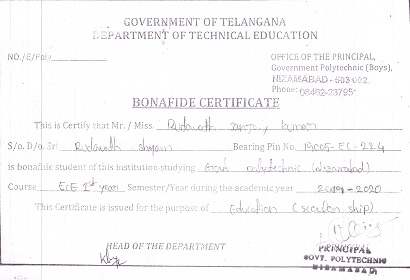 GOVERNMENT OF TELANGANA
DEPARTMENT OF TECHNICAL EDUCATION
NO./E/Poly
OFFICE OF THE PRINCIPAL,
Government Polytechnic (Boys),
NIZAMABAD - 503 002.
Phone: 08462-23795
BONAFIDE CERTIFICATE
This is Certify that Mr. / Miss. Rudavath kumar
S/o. D/o. Sri Rudavath Bearing Pin No. 19005-EC-224
is bonafide student of this institution studying Govt polytechnic (Nizamabad)
Course ECE 1st year Semester/Year during the academic year 2019 - 2020
This Certificate is issued for the purpose of Education ( ship)
HEAD OF THE DEPARTMENT
PRINCIPAL
GOVT. POLYTECHNIC
NIZAMABAD.